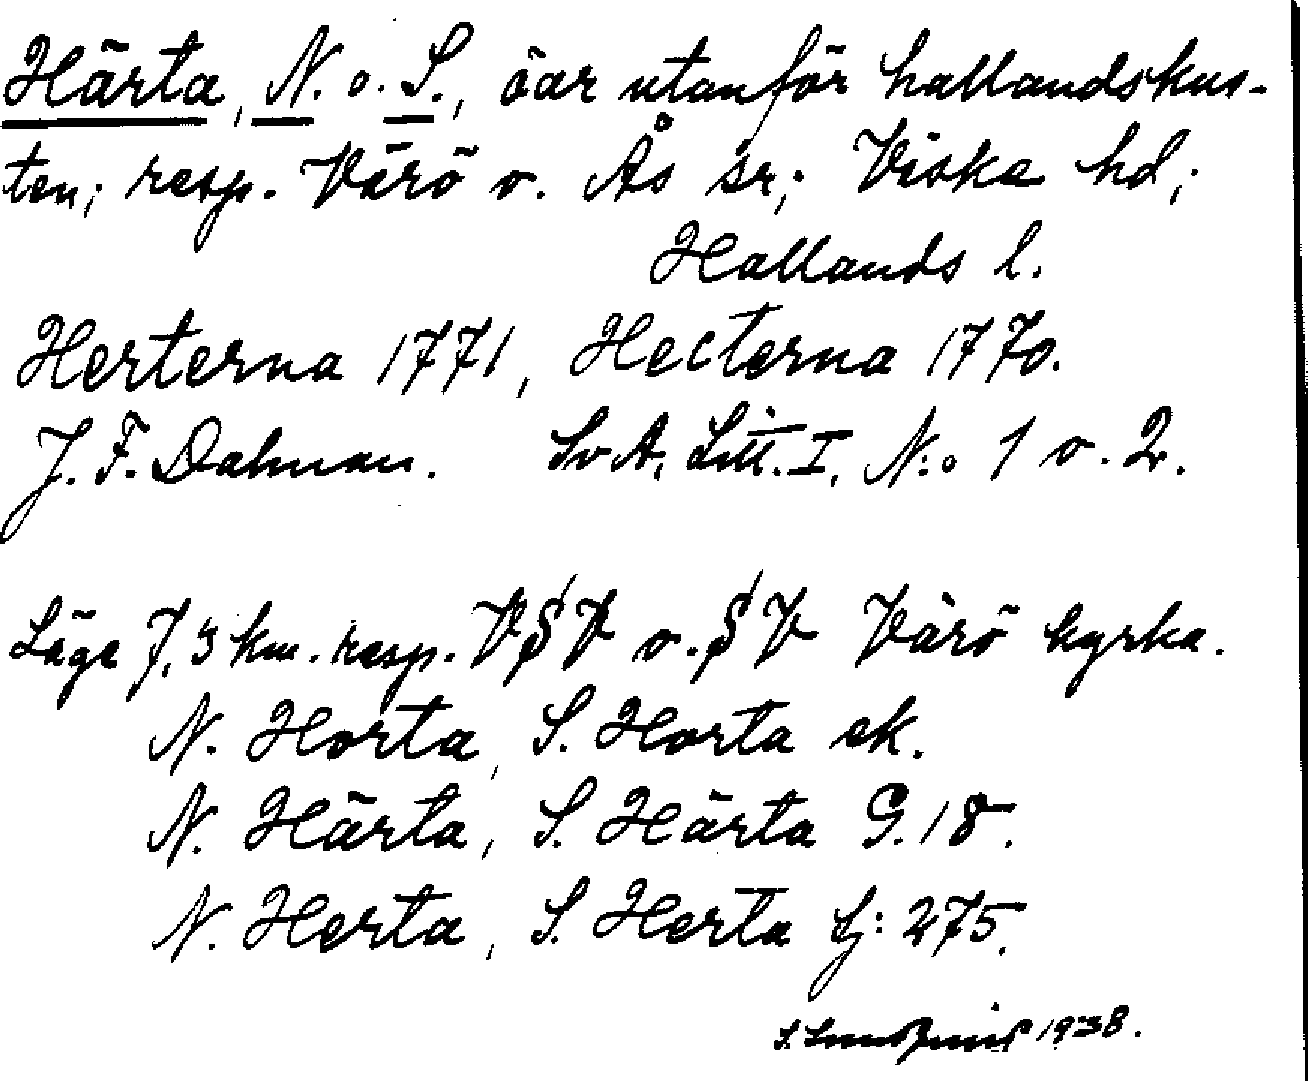 Härta, N. o. S., öar utanför hallandskus-
ten; resp. Värö o. Ås sr; Viske hd;
Hallands l.
Herterna 1771, Hecterna 1770.
J. F. Dalman. SvA, Litt. I, N:o 1 o. 2.
Läge 7,5 km. resp. VSV o. SV Värö kyrka.
N. Horta, S. Horta ek.
N. Härta, S. Härta G. 18.
N. Herta, S. Herta Sj: 275.
S. Lundquist 1938.